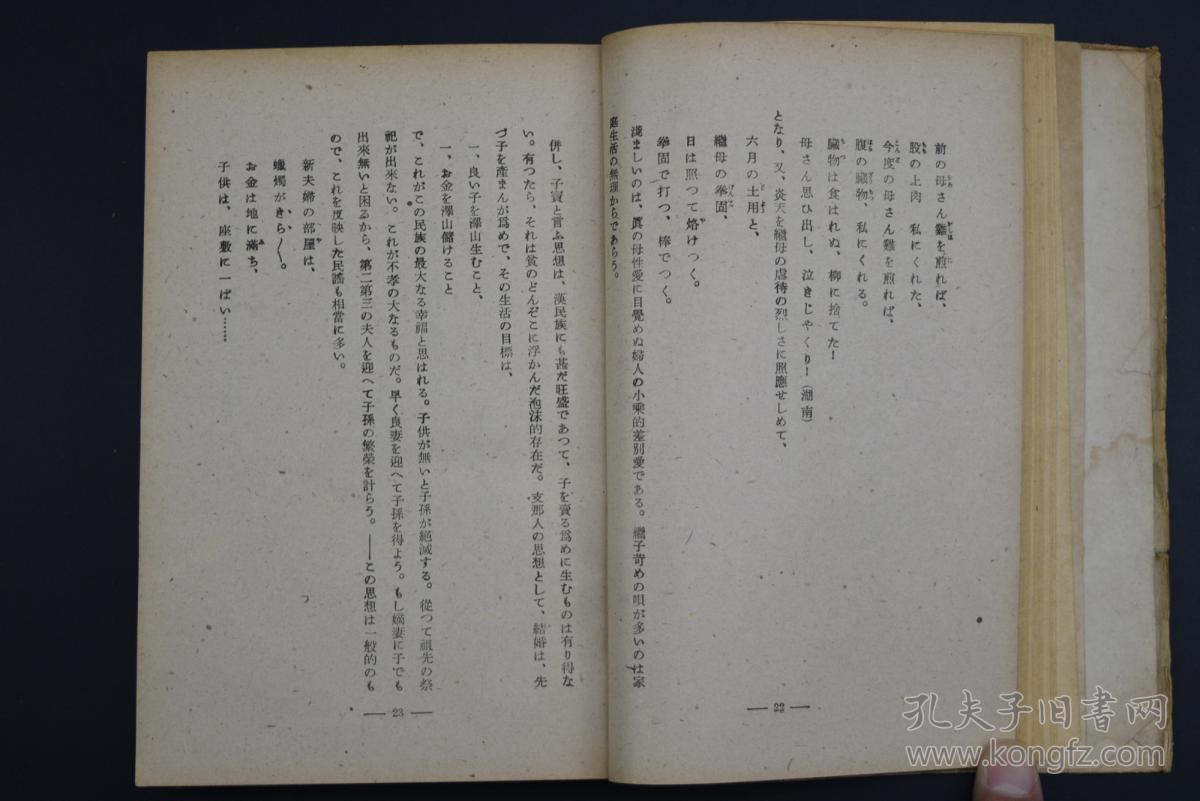 前の母さん雞を煎れば、
股の上肉　私にくれた、
今度の母さん雞を煎れば、
腹の臓物、私にくれる。
臓物は食はれぬ、柳に捨てた！
母さん思ひ出し、泣きじやくり！（湖南）
となり、又、炎天を繼母の虐待の烈しさに照應せしめて、
六月の土用と、
繼母の拳固、
日は照つて烙けつく。
拳固で打つ、棒でつく。
淺ましいのは、眞の母性愛に目覺めぬ婦人の小乘的差別愛である。繼子苛めの唄が多いのは家
庭生活の無理からであらう。
— 22 —
併し、子寶と言ふ思想は、漢民族にも甚だ旺盛であつて、子を賣る爲めに生むものは有り得な
い。有つたら、それは貧のどんぞこに浮かんだ泡沫的存在だ。支那人の思想として、結婚は、先
づ子を産まんが爲めで、その生活の目標は、
一、良い子を澤山生むこと、
一、お金を澤山儲けること
で、これがこの民族の最大なる幸福と思はれる。子供が無いと子孫が絶滅する。從つて祖先の祭
祀が出來ない。これが不孝の大なるものだ。早く良妻を迎へて子孫を得よう。もし嫡妻に子でも
出來無いと困るから、第二第三の夫人を迎へて子孫の繁榮を計らう。――この思想は一般的のも
ので、これを反映した民謡も相當に多い。
新夫婦の部屋は、
蠟燭がきら〱。
お金は地に滿ち、
子供は、座敷に一ぱい……
— 23 —
孔夫子旧书网
www.kongfz.com